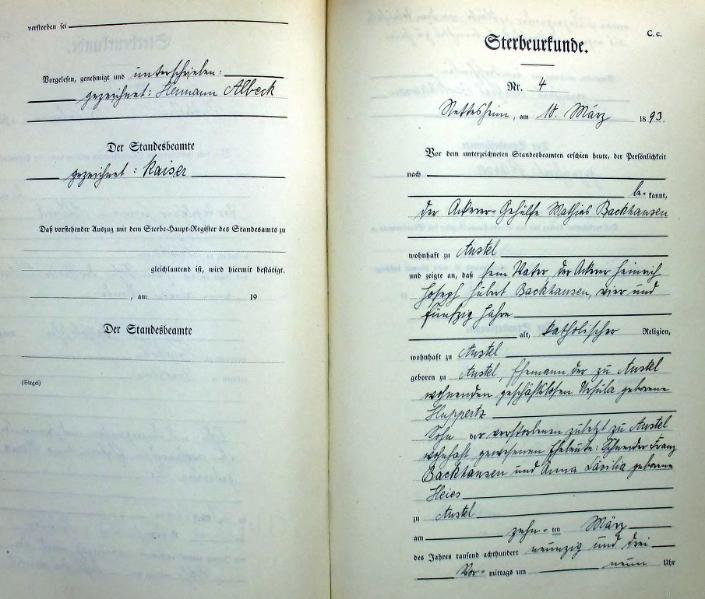 verstorben sei
Vorgelesen, genehmigt und unterschrieben:
gezeichnet: Hermann Albeck
Der Standesbeamte
gezeichnet: Kaiser
Daß vorstehender Auszug mit dem Sterbe-Haupt-Register des Standesamts zu
gleichlautend ist, wird hiermit bestätigt.
, am 19
Der Standesbeamte
(Siegel)
C. c.
Sterbeurkunde.
Nr. 4
Nettesheim, am 10. März 1893.
Vor dem unterzeichneten Standesbeamten erschien heute, der Persönlichkeit
nach
be- kannt,
der Ackerer-Gehülfe Mathias Backhausen
wohnhaft zu Anstel
und zeigte an, daß sein Vater, der Ackerer Heinrich
Joseph Hubert Backhausen, vier und
fünfzig Jahre
alt, katholischer Religion,
wohnhaft zu Anstel
geboren zu Anstel, Ehemann der zu Anstel
wohnenden geschäftslosen Ursula geborene
Huppertz
Sohn der verstorbenen zuletzt zu Anstel
wohnhaft gewesenen Eheleute: Schneider Franz
Backhausen und Anna Cäcilia geborene
Heies
zu Anstel
am zehn-ten März
des Jahres tausend achthundert neunzig und drei
Vor- mittags um neun Uhr